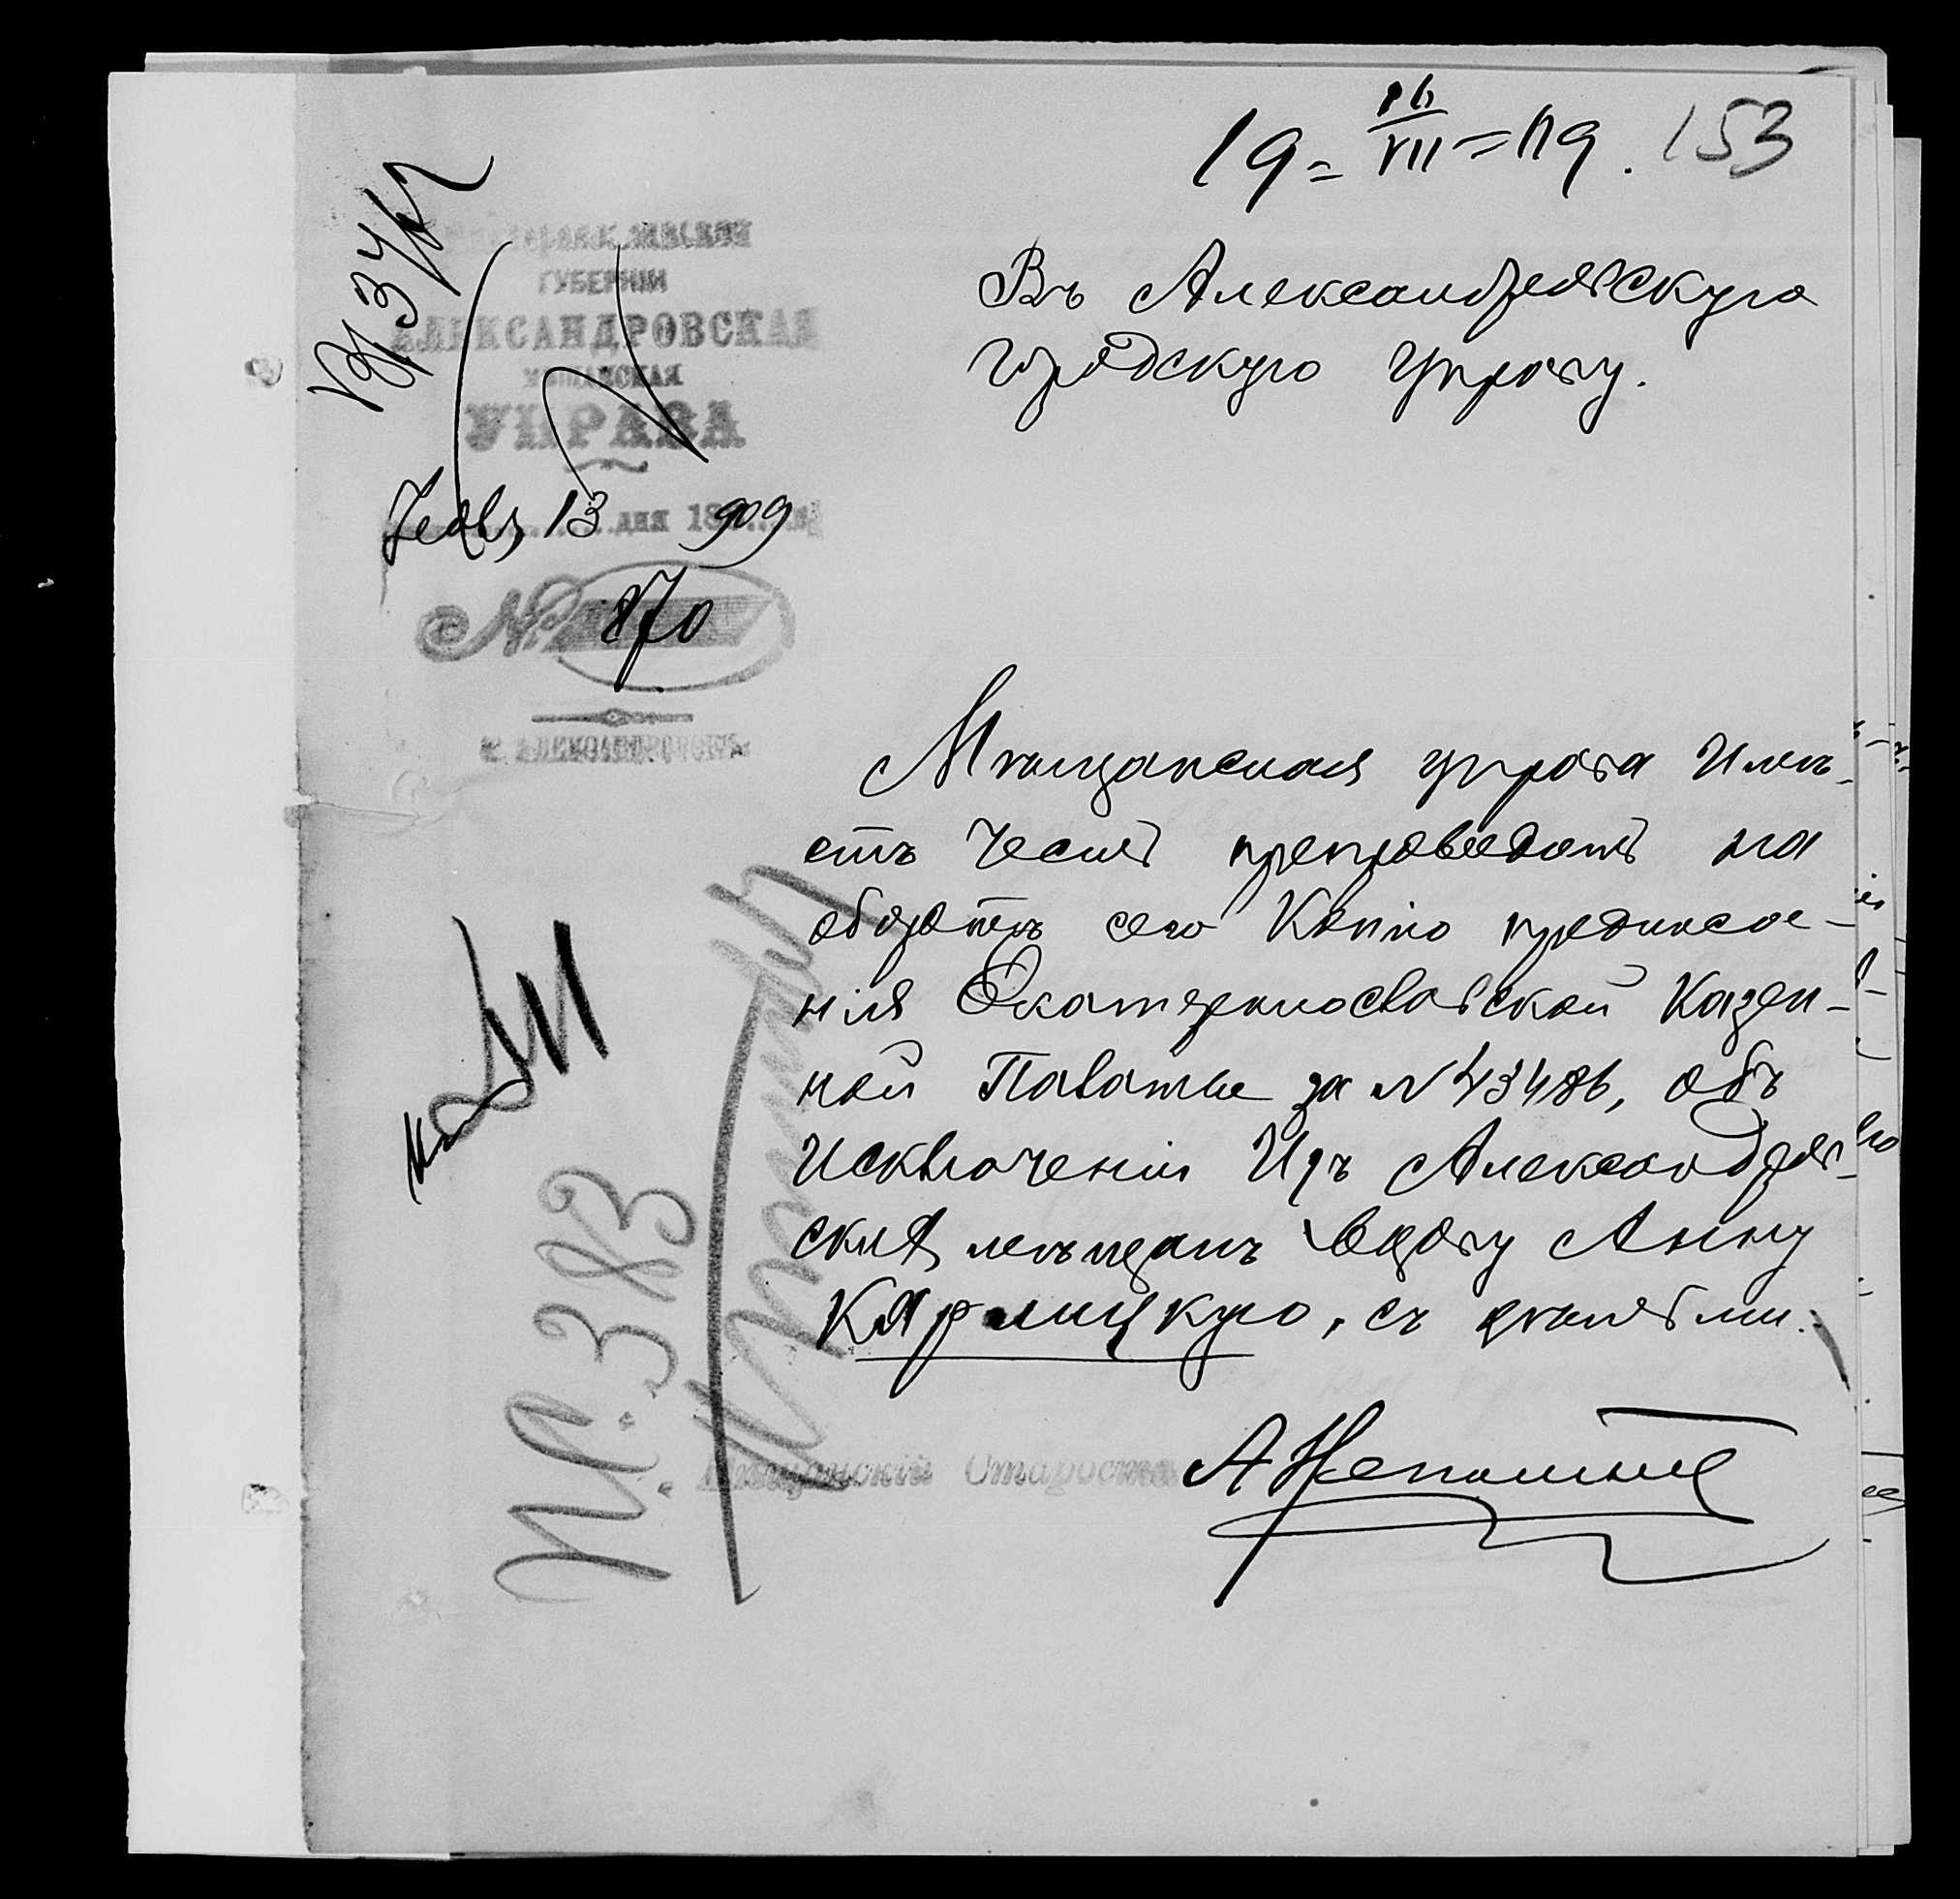 19 = 16/VII = 09. 153
ГУБЕРНІИ
АЛЕКСАНДРОВСКАЯ
МѢЩАНСКАЯ
УПРАВА
13 дня 18 909
№ 870
г. АЛЕКСАНДРОВСКЪ
Въ Александровскую
городскую управу.
Мѣщанская управа имѣ-
етъ честь препроводить на
оборотѣ сего Копію предписа-
нія Екатеринославской Казен-
ной Палаты за № 43486, объ
исключеніи изъ Александров-
скихъ мѣщанъ вдову Анну
Кармицкую, съ дѣтьми.
Мѣщанскій Староста
П.С. 383